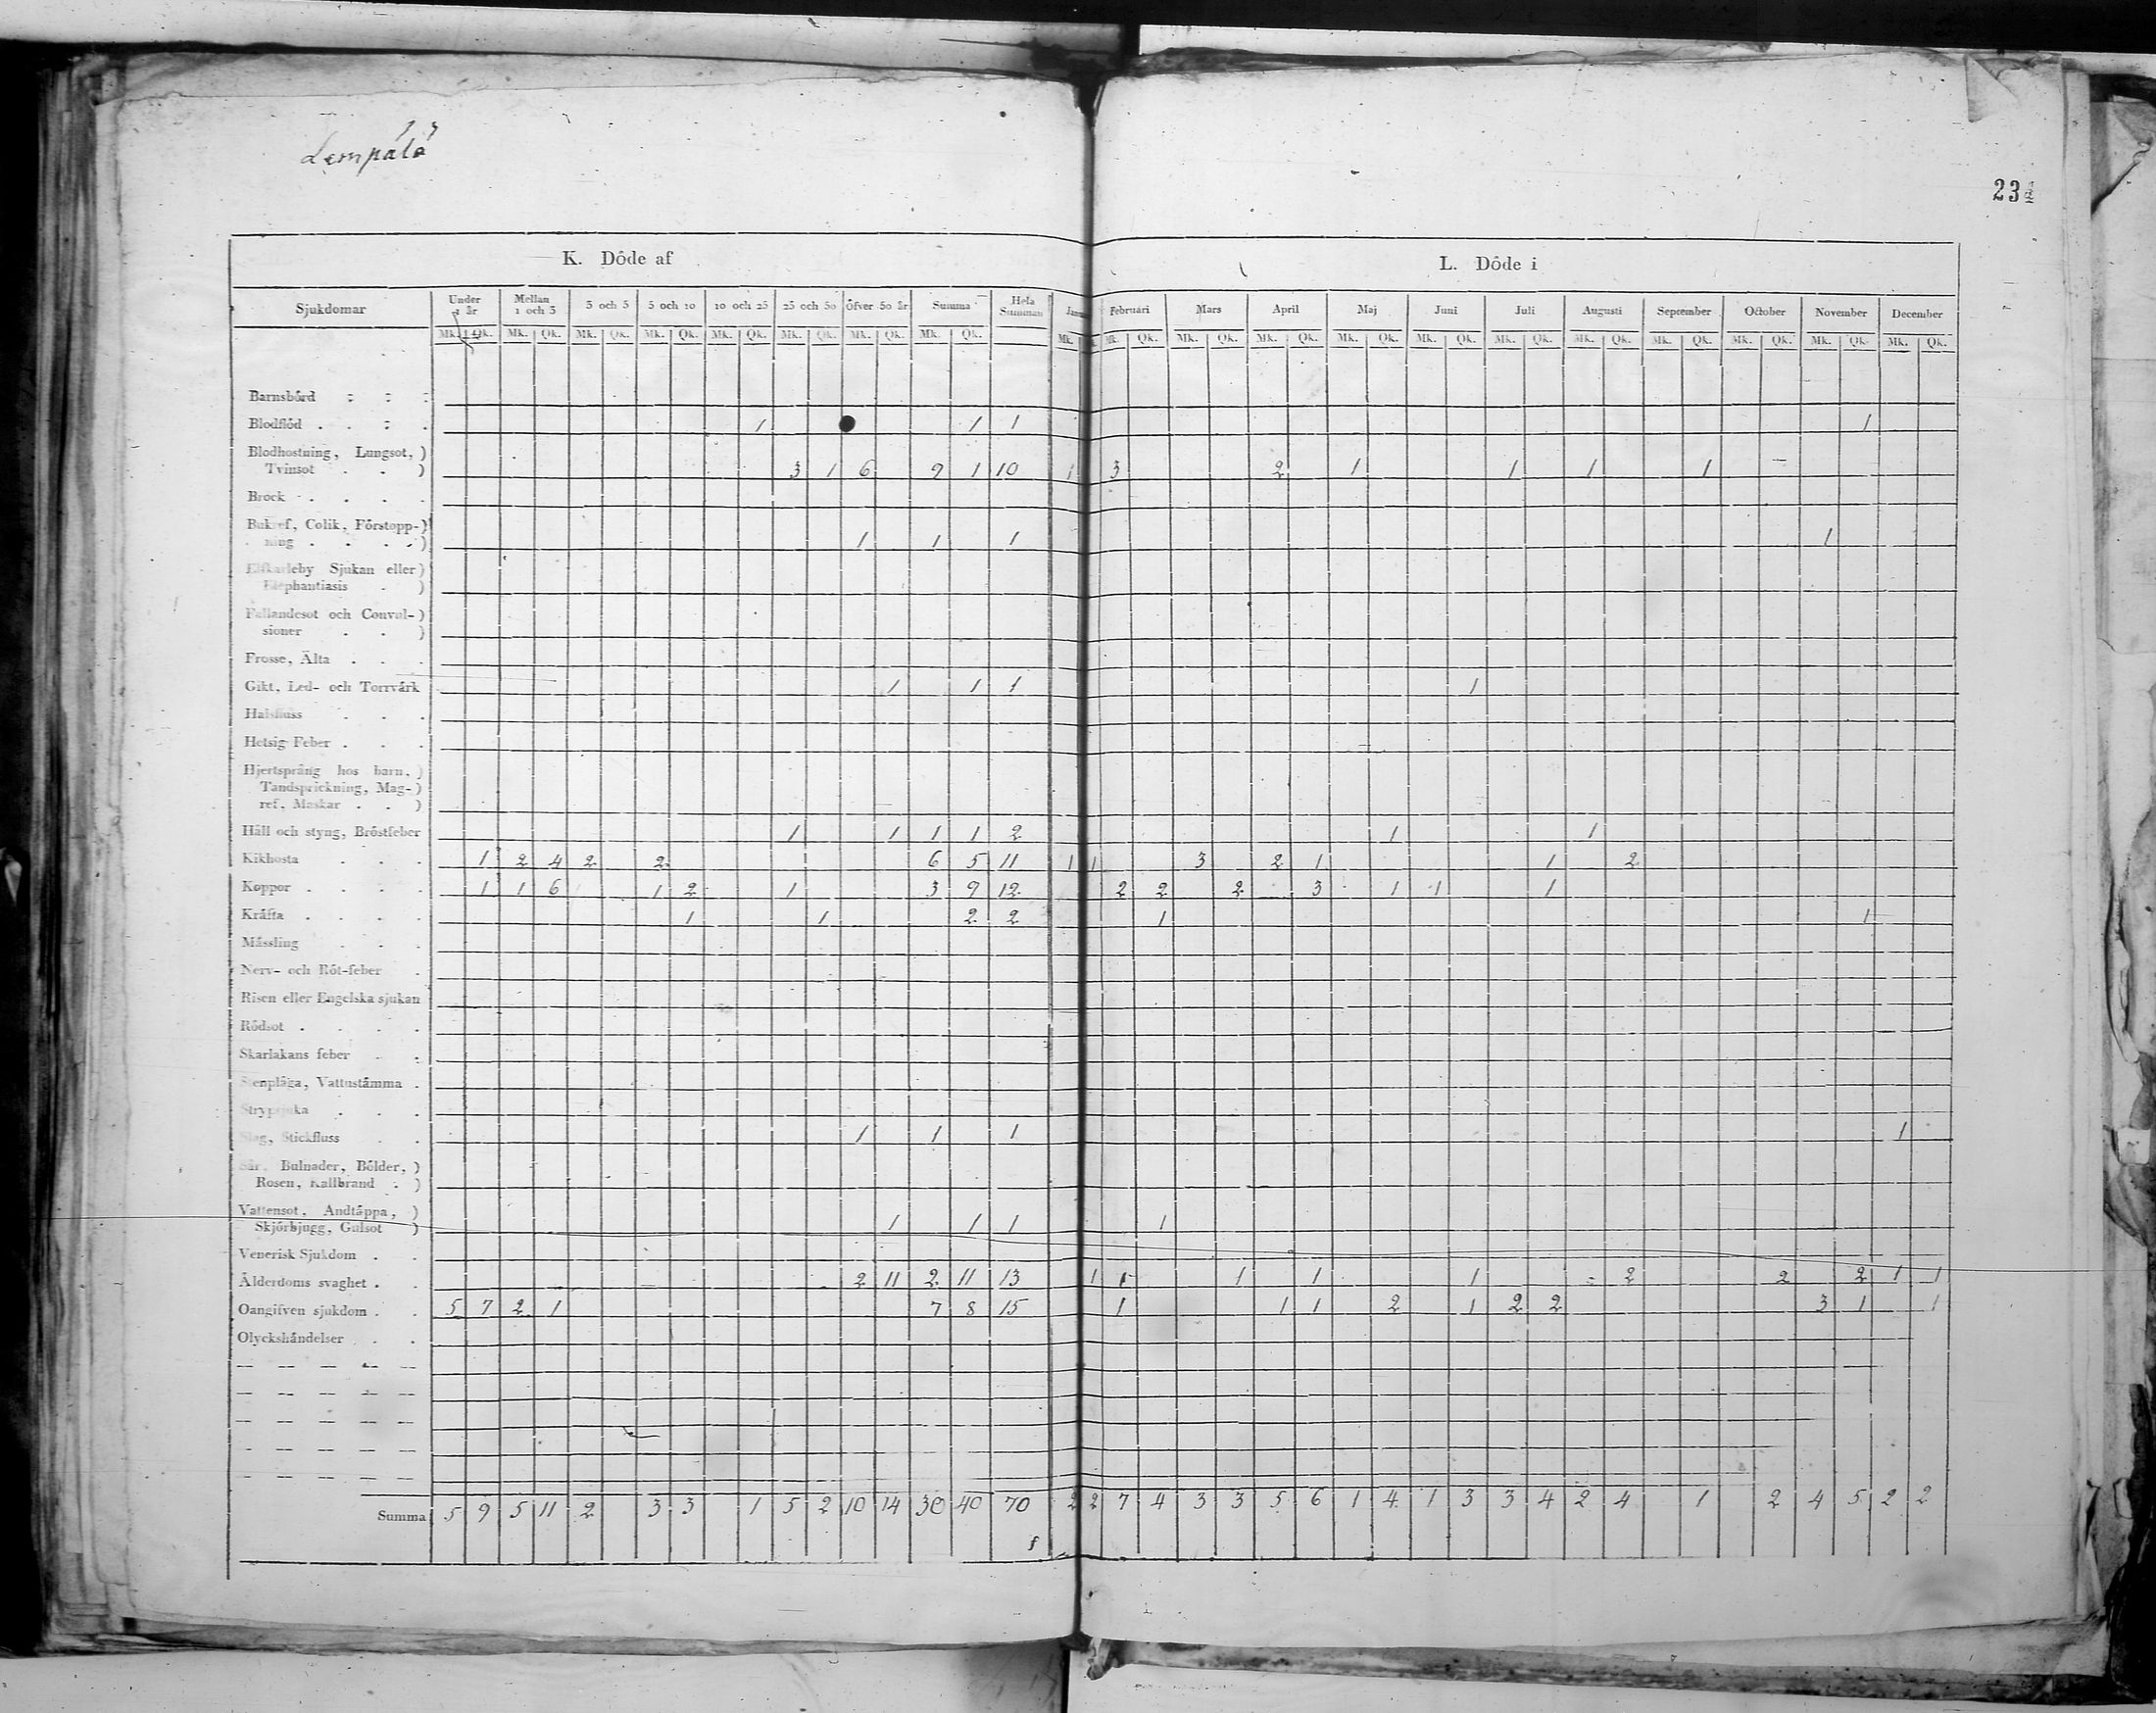 Lempälä
234
K. Döde af
L. Döde i
Sjukdomar Under 1 år Mellan 1 och 3 3 och 5 5 och 10 10 och 25 25 och 50 Öfver 50 år Summa Hela Summan Februari Mars April Maj Juni Juli Augusti September October November December
Mk. Qk. Mk. Qk. Mk. Qk. Mk. Qk. Mk. Qk. Mk. Qk. Mk. Qk. Mk. Qk. Mk. Mk. Qk. Mk. Qk. Mk. Qk. Mk. Qk. Mk. Qk. Mk. Qk. Mk. Qk. Mk. Qk. Mk. Qk. Mk. Qk. Mk. Qk.
Barnsbörd
Blodflöd 1 1 1 1
Blodhostning, Lungsot,)
Tvinsot ) 3 1 6 9 1 10 1 3 2 1 1 1 1
Brock
Bukref, Colik, Förstopp-)
ning ) 1 1 1 1
Elfkarleby Sjukan eller)
Elephantiasis )
Fallandesot och Convul-)
sioner )
Frosse, Älta
Gikt, Led- och Torrvärk 1 1 1 1
Halsfluss
Hetsig Feber
Hjertsprång hos barn,)
Tandsprickning, Mag-)
ref, Maskar )
Håll och styng, Bröstfeber 1 1 1 1 2 1 1
Kikhosta 1 2 4 2 2 6 5 11 1 1 3 2 1 1 2
Koppor 1 1 6 1 2 1 3 9 12 2 2 2 3 1 1 1
Kräfta 1 1 2 2 1 1
Mässling
Nerv- och Röt-feber
Risen eller Engelska sjukan
Rödsot
Skarlakans feber
Stenplåga, Vattustämma
Strypsjuka
Slag, Stickfluss 1 1 1 1
Sår, Bulnader, Bölder,)
Rosen, Kallbrand )
Vattensot, Andtäppa,)
Skjörbjugg, Gulsot ) 1 1 1 1
Venerisk Sjukdom
Ålderdoms svaghet 2 11 2 11 13 1 1 1 1 1 2 2 2 1 1
Oangifven sjukdom 5 7 2 1 7 8 15 1 1 1 2 1 2 2 3 1 1
Olyckshändelser
Summa 5 9 5 11 2 3 3 1 5 2 10 14 30 40 70 2 2 7 4 3 3 5 6 1 4 1 3 3 4 2 4 1 2 4 5 2 2